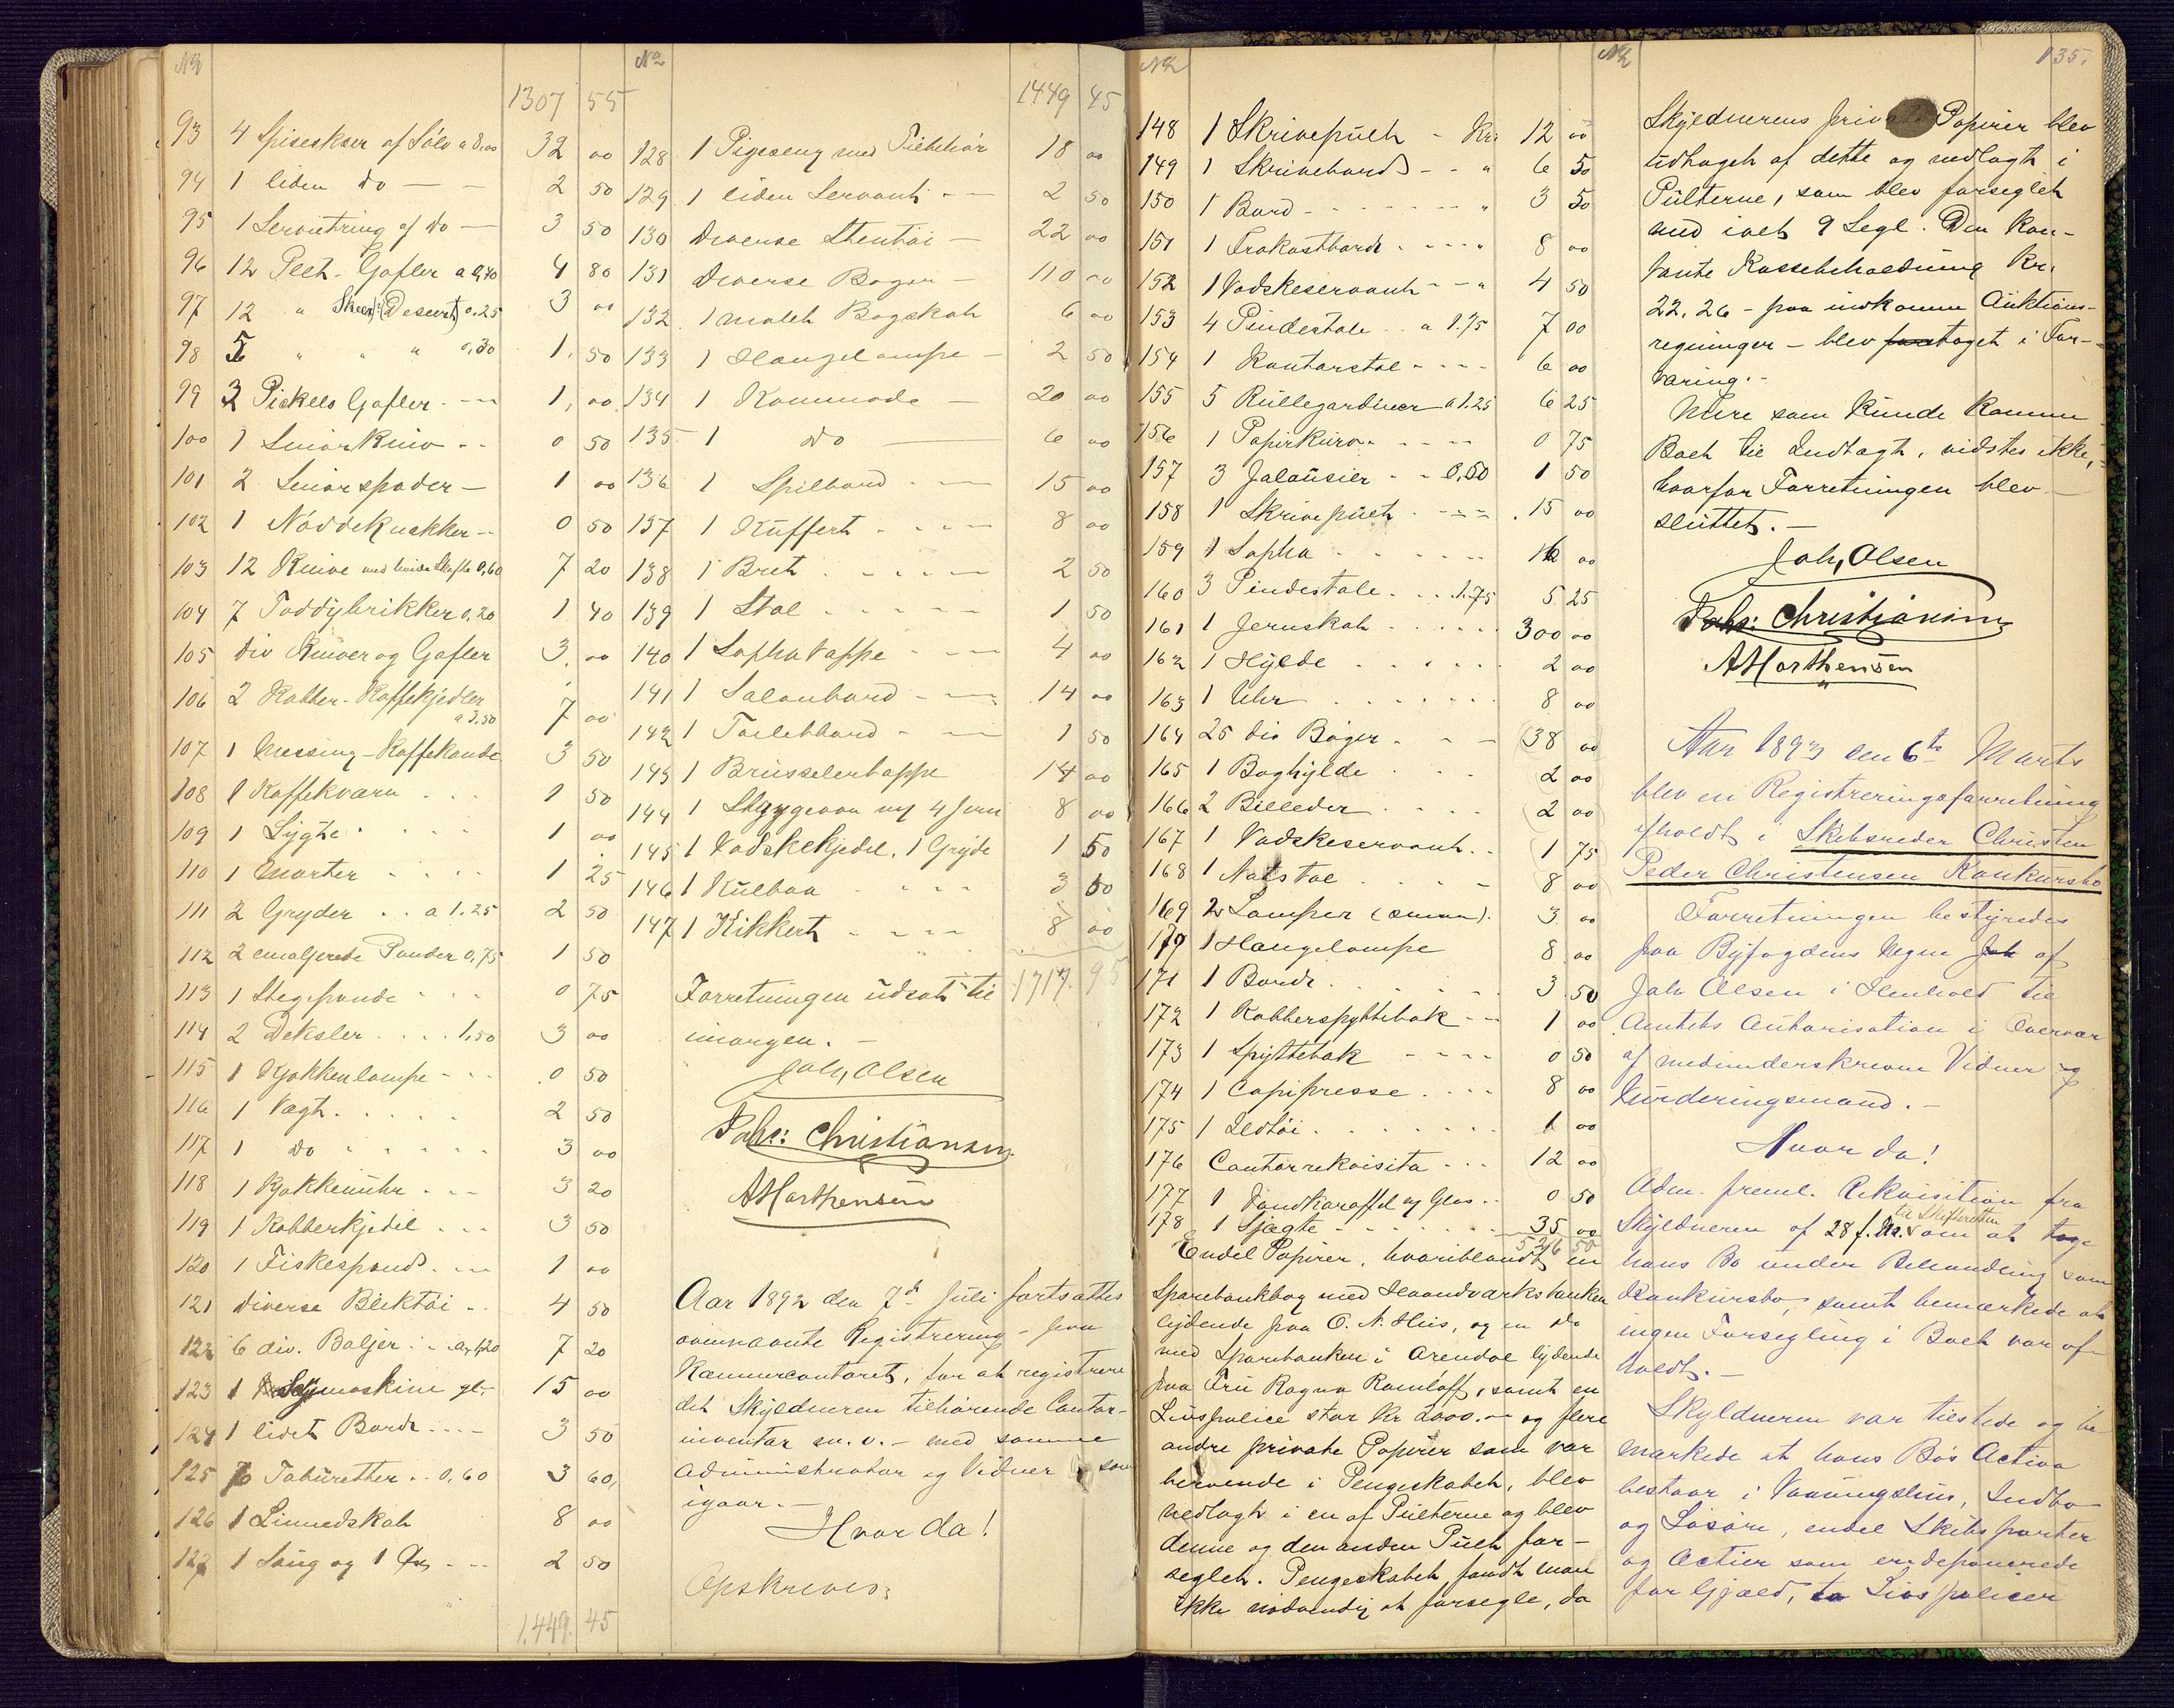 No
1307 55
93 4 Spiseskeer af Sølv a 8,00 32 00
94 1 liden do — - 2 50
95 1 Servietring af do — 3 50
96 12 Plet-Gafler a 0,40 4 80
97 12 " Skeer (Desert) 0.25 3 00
98 5 " " " 0,30 1. 50
99 2 Pickels Gafler - -- 1, 00
100 1 Smørkniv - - 0 50
101 2 Smørspader - 1 00
102 1 Nøddeknækker - - 0 50
103 12 Knive med hvide Skafte 0,60 7 20
104 7 Toddybrikker 0,20 1 40
105 div Kniver og Gafler 3. 00
106 2 Kobber-Kaffekjedler
a 3,50 7 00
107 1 Messing-Kaffekande 3 50
108 1 Kaffekværn . . . 1 50
109 1 Lygte . . . . 1 00
110 1 Morter . . . . 1 25
111 2 Gryder . . a 1.25 2 50
112 2 emaljerede Pander 0,75 1 50
113 1 Stegepande - - - 0 75
114 2 Deksler . . . . 1,50 3 00
115 1 Kjøkkenlampe - - - 0 50
116 1 Vægt . . . . . 2 50
117 1 do . . . . . 3 00
118 1 Kjøkkenuhr . - - 3 20
119 1 Kobberkjedel . . . 3 50
120 1 Fiskespand . - - 1 00
121 diverse Bliktøi - . 4 50
122 6 div. Baljer . - . a 1,20 7 20
123 1 Symaskine gl. - 15 00
124 1 lidet Bord . - - 3 50
125 6 Taburetter . . 0,60 3 60,
126 1 Linnedskab 8 00
127 1 Saug og 1 Øx . - - 2 50
1.449. 45
No
1449 45
128 1 Pigeseng med Tilbehør 18 00
129 1 liden Servant - - 2 50
130 Diverse Stentøi - 22 00
131 Diverse Bøger - 110 00
132 1 malet Bogskab 6 00
133 1 Hængelampe - 2 50
134 1 Kommode - 20 00
135 1 do — 6 00
136 1 Spilbord - - - 15 00
137 1 Kuffert - - - - 8 00
138 1 Bret . - - - - 2 50
139 1 Stol . - - - - 1 50
140 1 Sophatæppe - - - 4 00
141 1 Salonbord - - - 14 00
142 1 Toiletbord - - - 1 50
143 1 Brüsselertæppe 14 00
144 1 Strygeovn og 4 Jern 8 00
145 1 Vadskekjedel, 1 Gryde 1 50
146 1 Kulbox - - - - 3 50
147 1 Kikkert - - - - 8 00
Forretningen udsat til 1717. 95
imorgen. -
Joh, Olsen
Johs: Christiansen
A Morthensen
Aar 1892 den 7de Juli fortsattes
ovennævnte Registrering - paa
Kæmnercontoret, for at registrere
det Skyldneren tilhørende Contor-
inventar m. v. - med samme
administrator og Vidner som
igaar. -
Hvor da!
Opskreves:
No
148 1 Skrivepult - Kr. 12 00
149 1 Skrivebord - - " 6 50
150 1 Bord - - - - - - " 3 50
151 1 Frokostbord . - - - " 8 00
152 1 Vadskeservant - - " 4 50
153 4 Pindestole . . a 1.75 7 00
154 1 Kontorstol - - - - 6 00
155 5 Rullegardiner a 1.25 6 25
156 1 Papirkurv . - - - - 0 75
157 3 Jalousier - - 0,50 1 50
158 1 Skrivepult . - - - . 15 00
159 1 Sopha . . - . - - 16 00
160 3 Pindestole . . . 1.75 5 25
161 1 Jernskab . . . . . . 300 00
162 1 Hylde . . . . . . 2 00
163 1 Uhr . . . . . . . 8 00
164 25 div Bøger . - - 38 00
165 1 Boghylde . . . 2 00
166 2 Billeder . . . . 2 00
167 1 Vadskeservant . . 1 75
168 1 Natstol . . . - 8 00
169 2 Lamper 3 00
170 1 Hængelampe 8 00
171 1 Bord . . . . . . 3 50
172 1 Kobberspyttebak - - 1 00
173 1 Spyttebak - - - - 0 50
174 1 Copipresse . . . . 8 00
175 1 Ildtøi . . . . . . . 1 00
176 Contorrekvisita . . . 12 00
177 1 Vandkaraffel og Glas . . 0 50
178 1 Sjægte - - - - - - 35 00
526 50
Endel Papirer, hvoriblandt en
Sparebankbog med Haandværksbanken
lydende paa O. N. Hiis, og en do
med Sparebanken i Arendal lydende
paa Fru Ragna Romloff, samt en
Livspolice stor Kr 2000.- og flere
andre private Papirer som var
beroende i Pengeskabet, blev
nedlagt i en af Pulterne og blev
denne og den anden Pult for-
seglet. Pengeskabet fandt man
ikke nødvendig at forsegle, da
No 135.
Skyldnerens private Papirer blev
udtaget af dette og nedlagt i
Pulterne, som blev forseglet
med ialt 9 Segl. Den kon-
tante Kassebeholdning Kr.
22.26 - paa indkomne Auktions-
regninger - blev taget i For-
varing. -
Mere som kunde komme
Boet til Indtægt, vidstes ikke,
hvorfor Forretningen blev
sluttet. -
Joh, Olsen
Johs: Christiansen
A Morthensen
Aar 1893 den 6te Marts
blev en Registreringsforretning
afholdt i Skibsreder Christen
Peder Christensen Konkursbo
Forretningen bestyredes
paa Byfogdens Vegne af
Joh Olsen i Henhold til
Amtets Autorisation i Overvær
af medunderskrevne Vidner og
Vurderingsmænd. -
Hvor da!
Adm. freml. Rekvisition fra
Skyldneren til Skifteretten af 28 f. M. om at tage
hans Bo under Behandling som
Konkursbo, samt bemærkede at
ingen Forsegling i Boet var af-
holdt. -
Skyldneren var tilstede og be-
mærkede at hans Bo's Activa
bestaar i Vaaningshus, Indbo
og Løsøre, endel Skibsparter
og Actier som er deponerede
for Gjæld, to Livspolicer